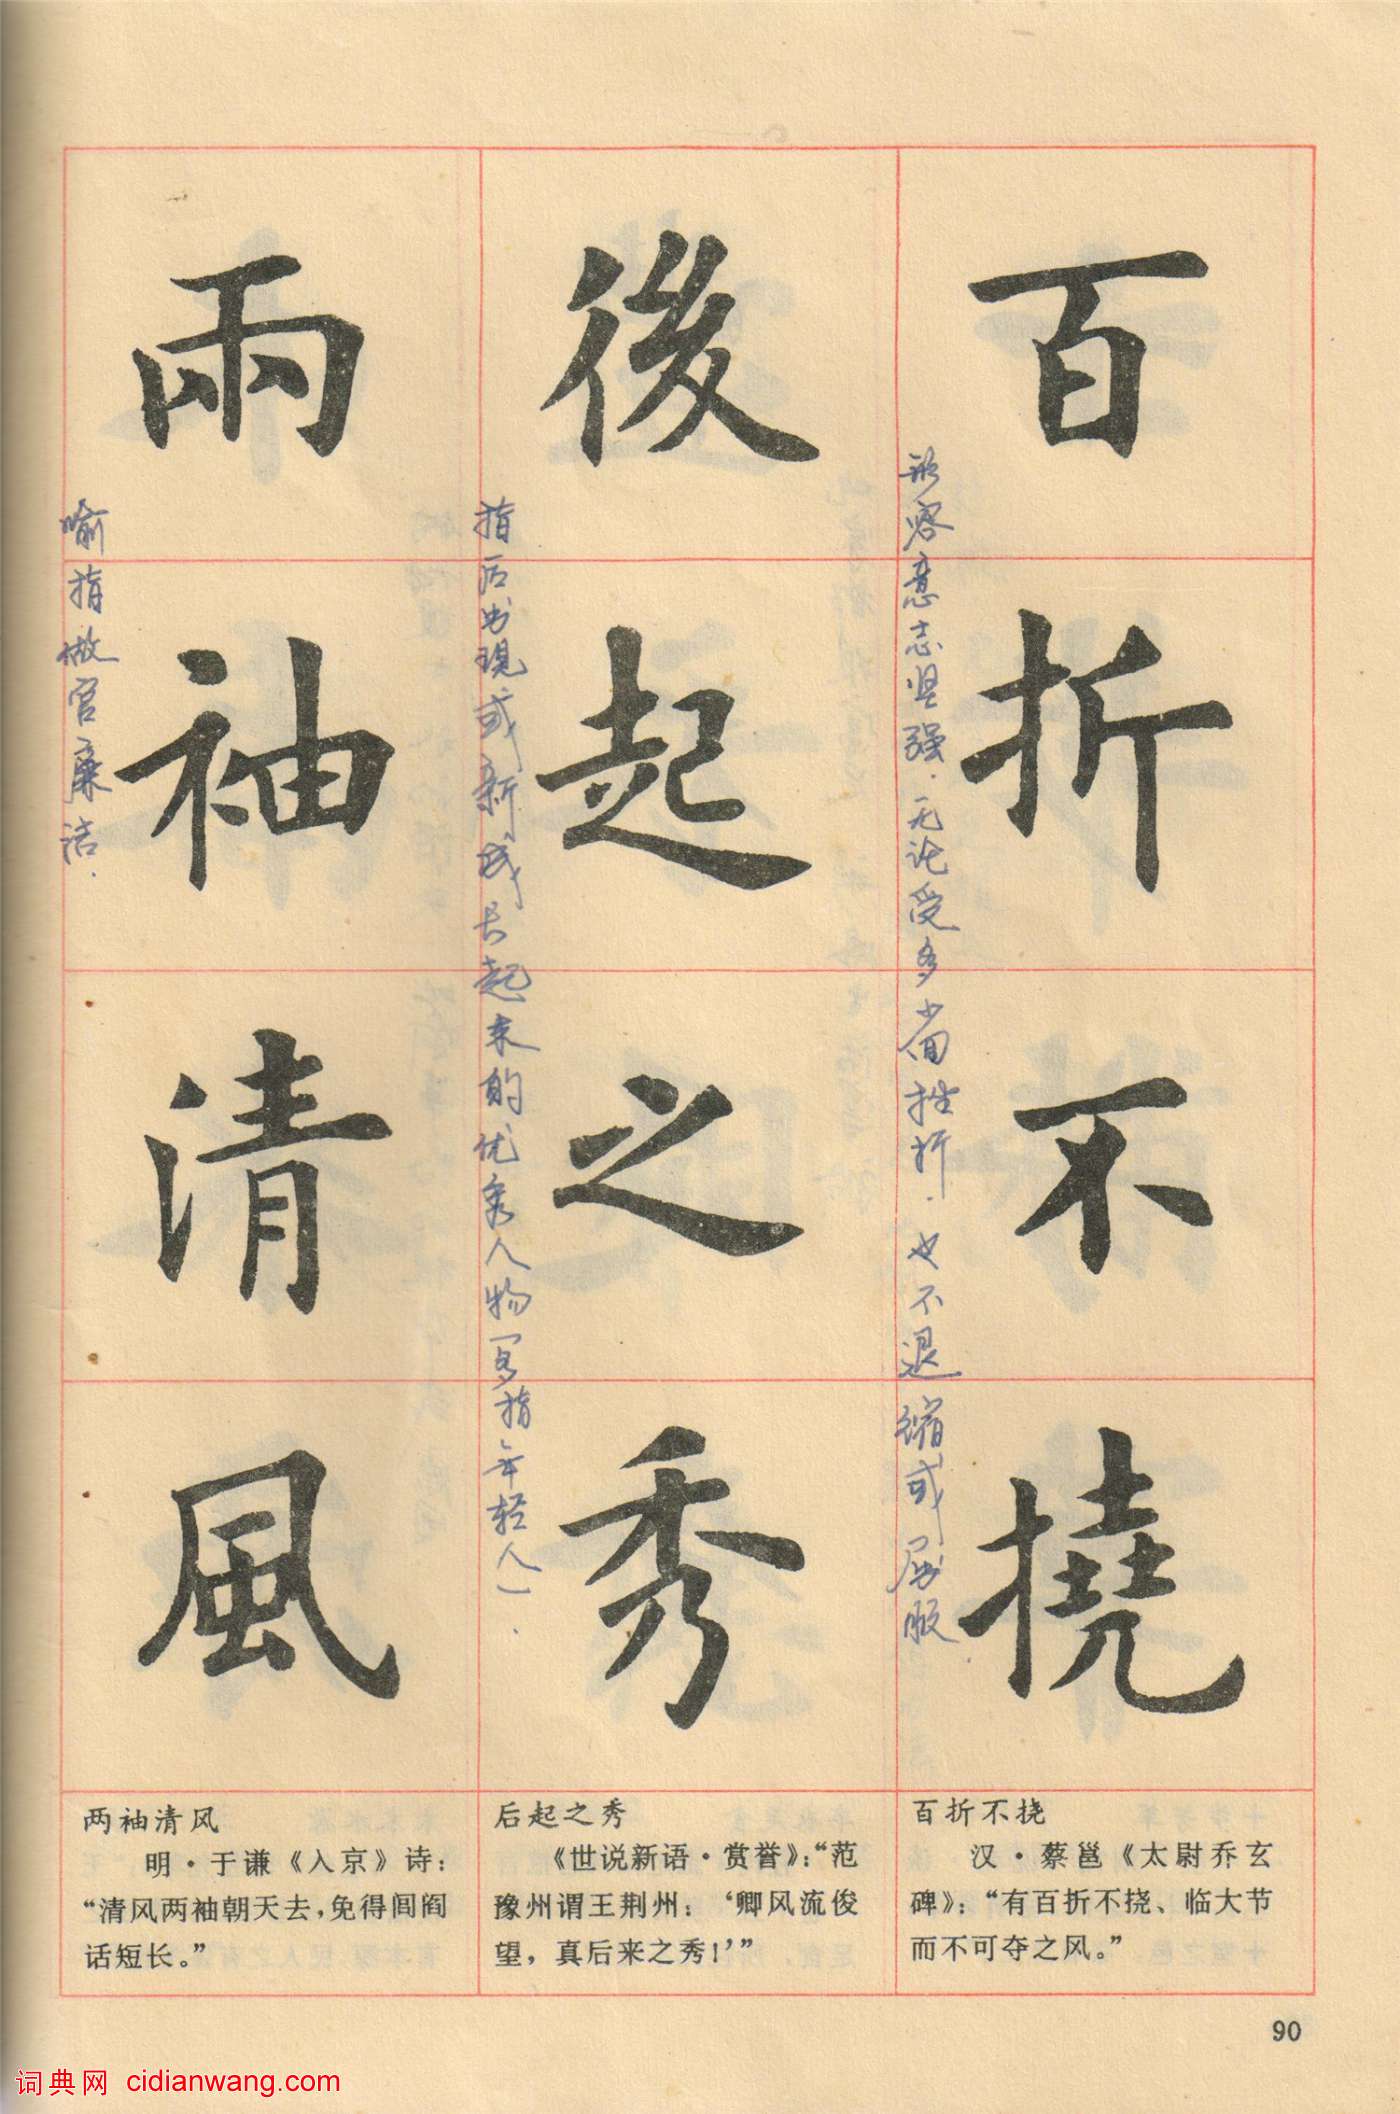 百折不撓
形容意志坚强.无论受多少回挫折.也不退缩或屈服
後起之秀
指后出现或新成长起来的优秀人物(多指年轻人).
兩袖清風
喻指做官廉洁.
百折不挠
汉·蔡邕《太尉乔玄
碑》:“有百折不挠、临大节
而不可夺之风。”
后起之秀
《世说新语·赏誉》:“范
豫州谓王荆州:‘卿风流俊
望,真后来之秀!’”
两袖清风
明·于谦《入京》诗:
“清风两袖朝天去,免得闾阎
话短长。”
90
词典网 cidianwang.com